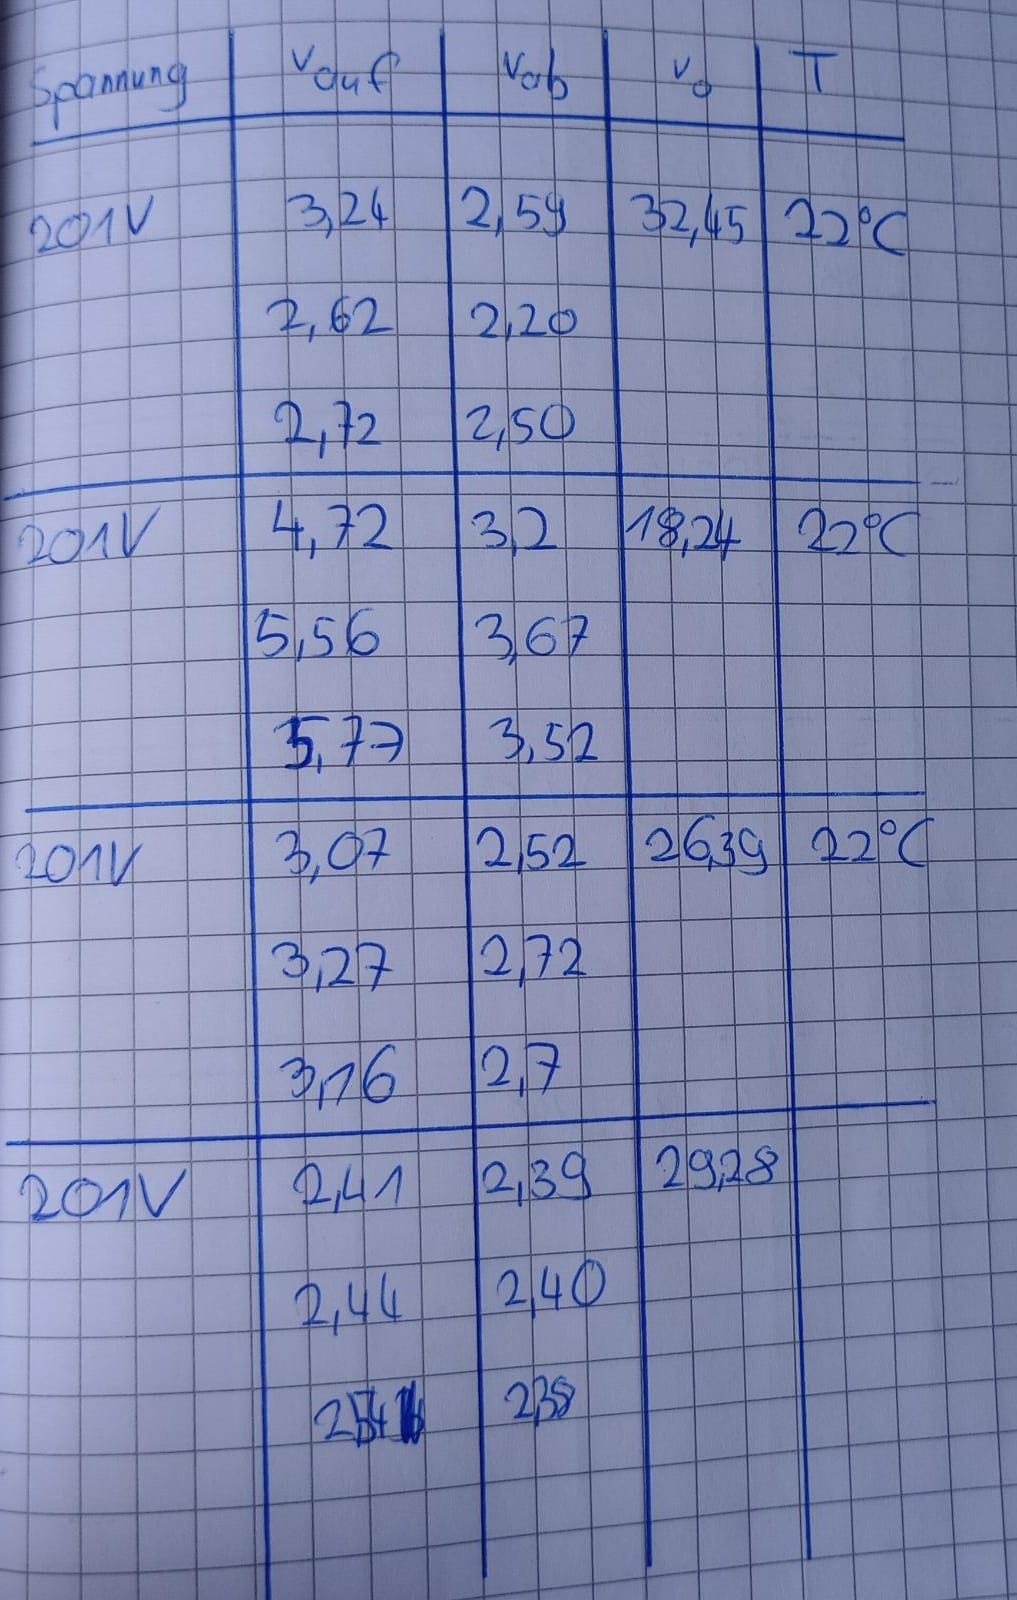 Spannung v auf v ab v 0 T
201V 3,24 2,59 32,45 22°C
2,62 2,20
2,72 2,50
201V 4,72 3,2 18,24 22°C
5,56 3,67
5,77 3,52
201V 3,07 2,52 26,39 22°C
3,27 2,72
3,16 2,7
201V 2,41 2,39 29,28
2,44 2,40
2,38